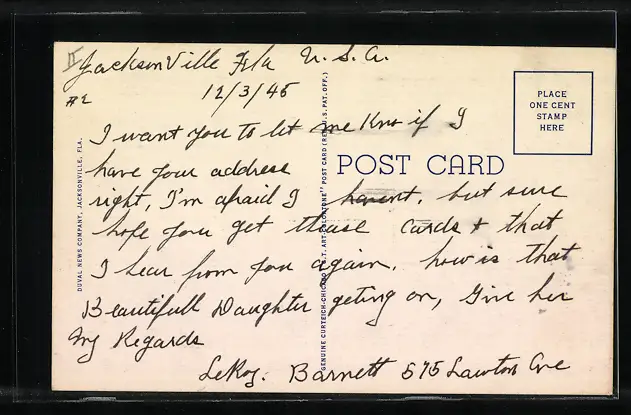 II
Jacksonville Fla U.S.A.
#2
12/3/45
PLACE
ONE CENT
STAMP
HERE
I want you to let me Kno if I
have your address
POST CARD
right, I'm afraid I havent, but sure
hope you get thease cards & that
I hear from you again. how is that
Beautifull Daughter geting on, Give her
my Regards
LeRoy. Barnett 575 Lawton Ave
DUVAL NEWS COMPANY, JACKSONVILLE, FLA.
GENUINE CURTEICH-CHICAGO "C.T. ART-COLORTONE" POST CARD (REG. U.S. PAT. OFF.)